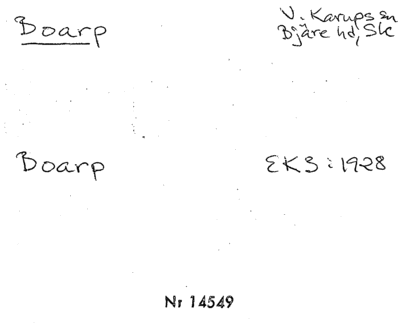 Boarp
V. Karups sn
Bjäre hd, Sk
Boarp
EKS: 1928
Nr 14549